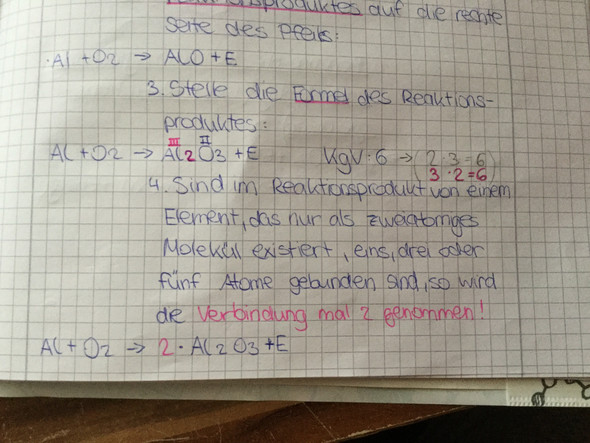 Reaktionsproduktes auf die rechte
Seite des Pfeils:
Al + O2 → AlO + E
3. Stelle die Formel des Reaktions-
produktes:
III II
Al + O2 → Al2O3 + E KgV: 6 → (2·3=6
3·2=6)
4. Sind im Reaktionsprodukt von einem
Element, das nur als zweiatomiges
Molekül existiert, eins, drei oder
fünf Atome gebunden sind, so wird
die Verbindung mal 2 genommen!
Al + O2 → 2 · Al2O3 + E